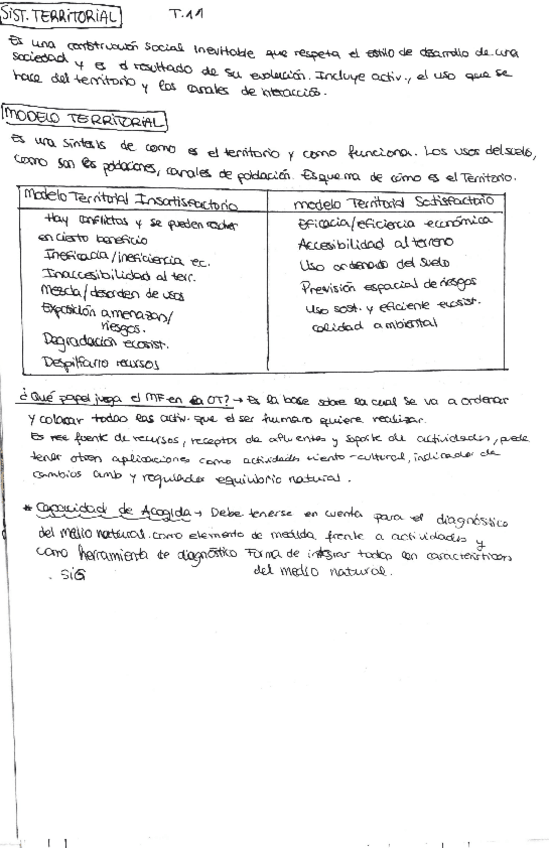 SIST. TERRITORIAL T.11
Es una construcción social inevitable que respeta el estilo de desarrollo de una
sociedad y es el resultado de su evolución. Incluye activ., el uso que se
hace del territorio y los canales de interacción.
MODELO TERRITORIAL
Es una síntesis de como es el territorio y como funciona. Los usos del suelo,
como son las poblaciones, canales de población. Esquema de cómo es el Territorio.
Modelo Territorial Insatisfactorio
Hay conflictos y se pueden
en cierto beneficio
Ineficacia/ineficiencia ec.
Inaccesibilidad al terr.
Mezcla/desorden de usos
Exposición amenazas/
riesgos.
Degradación ecosist.
Despilfarro recursos
modelo Territorial Satisfactorio
Eficacia/eficiencia económica
Accesibilidad al terreno
Uso ordenado del suelo
Previsión espacial de riesgos
Uso sost. y eficiente ecosist.
calidad ambiental
¿Qué papel juega el MF en la OT? → Es la base sobre la cual se va a ordenar
y colocar todas las activ. que el ser humano quiere realizar.
Es fuente de recursos, receptor de afluentes y soporte de actividades, puede
tener otras aplicaciones como actividades ciento-cultural, indicador de
cambios amb y regulador equilibrio natural.
* Capacidad de Acogida → Debe tenerse en cuenta para el diagnóstico
del medio natural. como elemento de medida frente a actividades y
como herramienta de diagnóstico Forma de integrar todas las características
. SIG del medio natural.